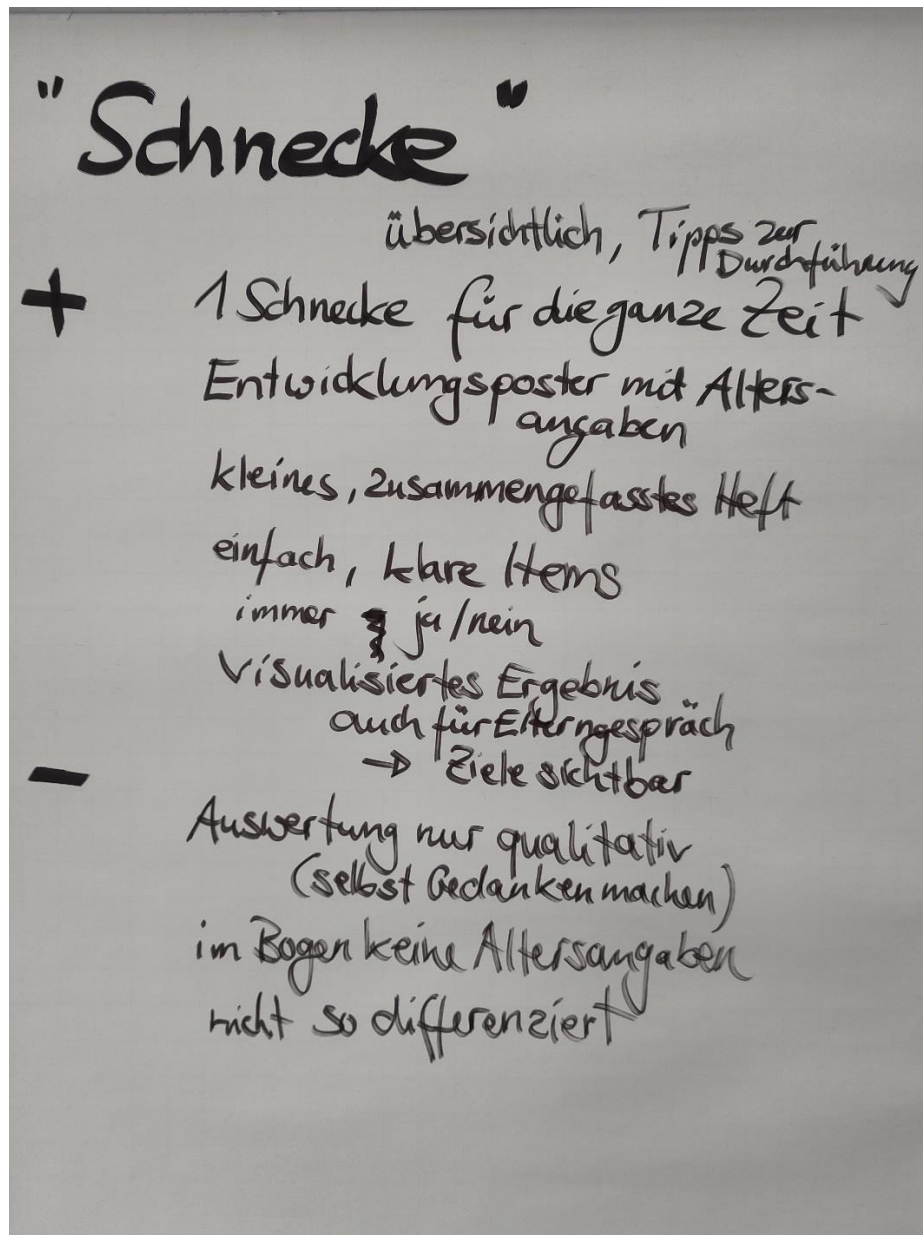 "Schnecke"
übersichtlich, Tipps zur
Durchführung
+ 1 Schnecke für die ganze Zeit
Entwicklungsposter mit Alters-
angaben
kleines, zusammengefasstes Heft
einfach, klare Items
immer ja/nein
Visualisiertes Ergebnis
auch für Elterngespräch
→ Ziele sichtbar
-
Auswertung nur qualitativ
(selbst Gedanken machen)
im Bogen keine Altersangaben
nicht so differenziert